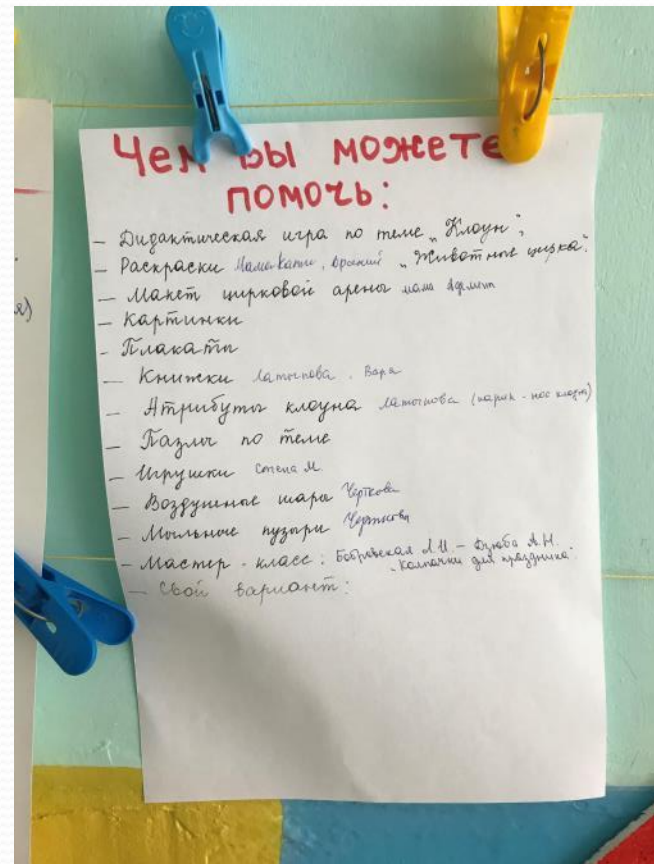 Чем вы можете
помочь:
– Дидактическая игра по теме „Клоун";
– Раскраски Мама Кати, Арсений „Животные цирка".
– Макет цирковой арены мама
– Картинки
– Плакаты
– Книжки Латыпова, Варя
– Атрибуты клоуна Латыпова (парик - нос клоун)
– Пазлы по теме
– Игрушки Степа М.
– Воздушные шары Черткова
– Мыльные пузыри Черткова
– Мастер-класс: Бобровская Л.И. – Дзюба А.Н.
„Колпачки для праздника".
– Свой вариант:
я)